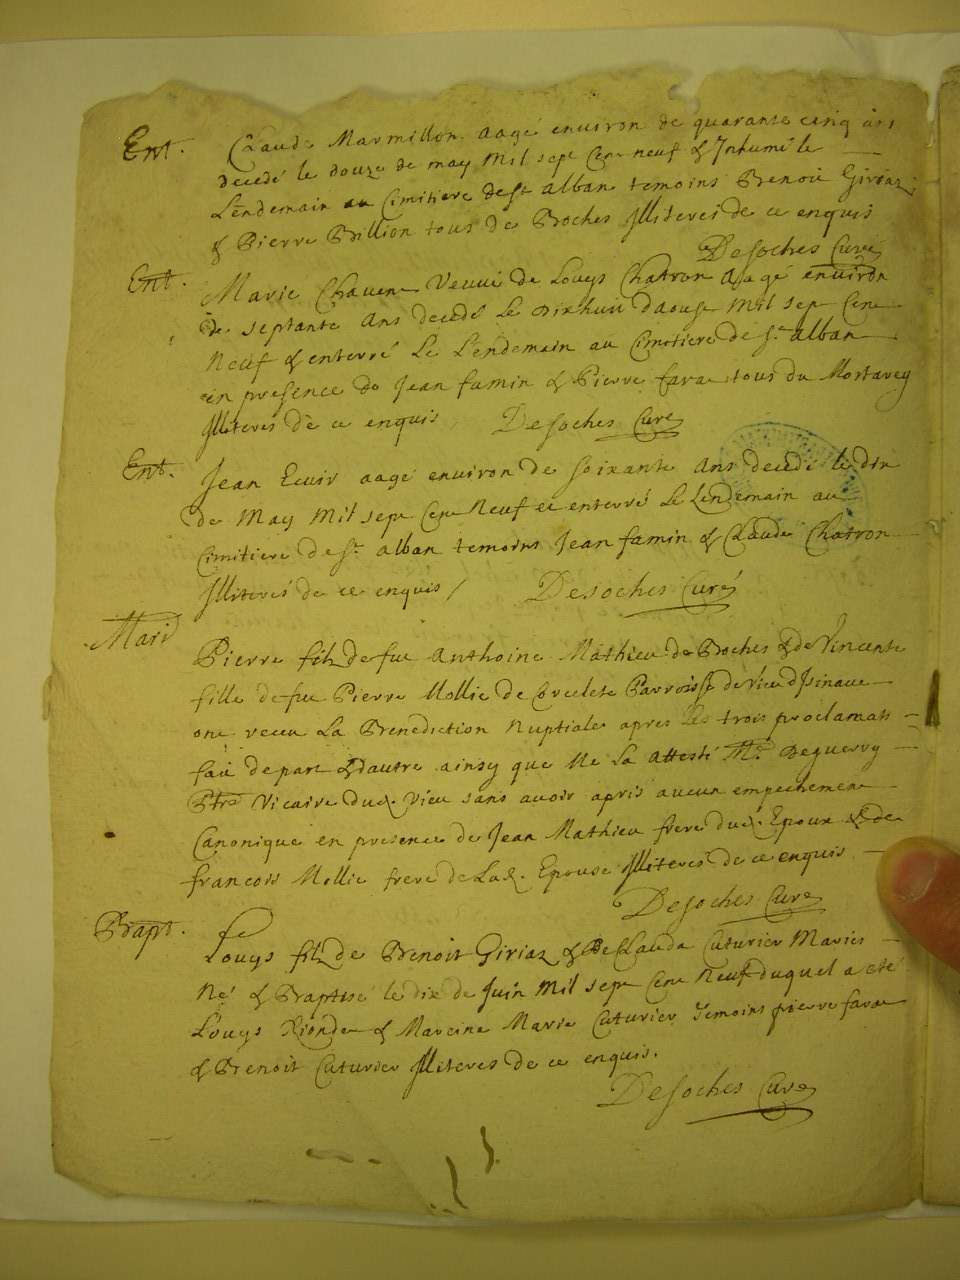 Ent. Claude Marmillon aagé environ de quarante cinq ans
decedé le douze de may mil sept cent neuf & Inhumé le
Lendemain au Cimitiere de St alban temoins Benoit Giriaz
& Pierre Billion tous de Broches Illiterés de ce enquis
Desoches Curé
Ent. Marie Chavent Veuve de Louys Chatron aagé environ
de septante ans decedé Le Dixhuit daoust mil sept Cent
Neuf & enterré Le Lendemain au Cimitiere de St alban
en presence de Jean famin & Pierre farat tous du Mortarey
Illiterés de ce enquis Desoches Curé
Ent. Jean Ecuir aagé environ de soixante ans decedé le dix
de May mil sept Cent Neuf et enterré Le Lendemain au
Cimitiere de St alban temoins Jean famin & Claude Chatron
Illiterés de ce enquis / Desoches Curé
Mari
Pierre filz de fut Anthoine Mathieu de Broches & de Vincente
fille de fut Pierre Mollie de Corcelete Parroisse de
ont receu La Benediction Nuptiale apres Les trois proclamats
fait de part & dautre ainsy que Me la attesté Mr Deguerry
Ptre Vicaire dud. Vieu sans avoir apris aucun empechement
Canonique en presence de Jean Mathieu frere dud. Epoux & de
francois Mollie frere de Lad. Epouse Illiterés de ce enquis
Desoches Curé
Bapt. Louys filz de Benoit Giriaz & De Clauda Cuturier Mariés
Né & Baptisé le dix de Juin mil sept Cent Neuf duquel a eté
Louys & Mareine Marie Cuturier Temoins pierre farat
& Benoit Cuturier Illiteres de ce enquis.
Desoches Curé